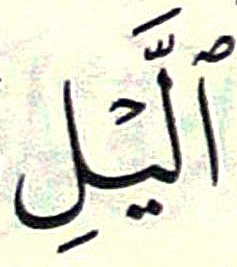 ٱلَّيۡلِ